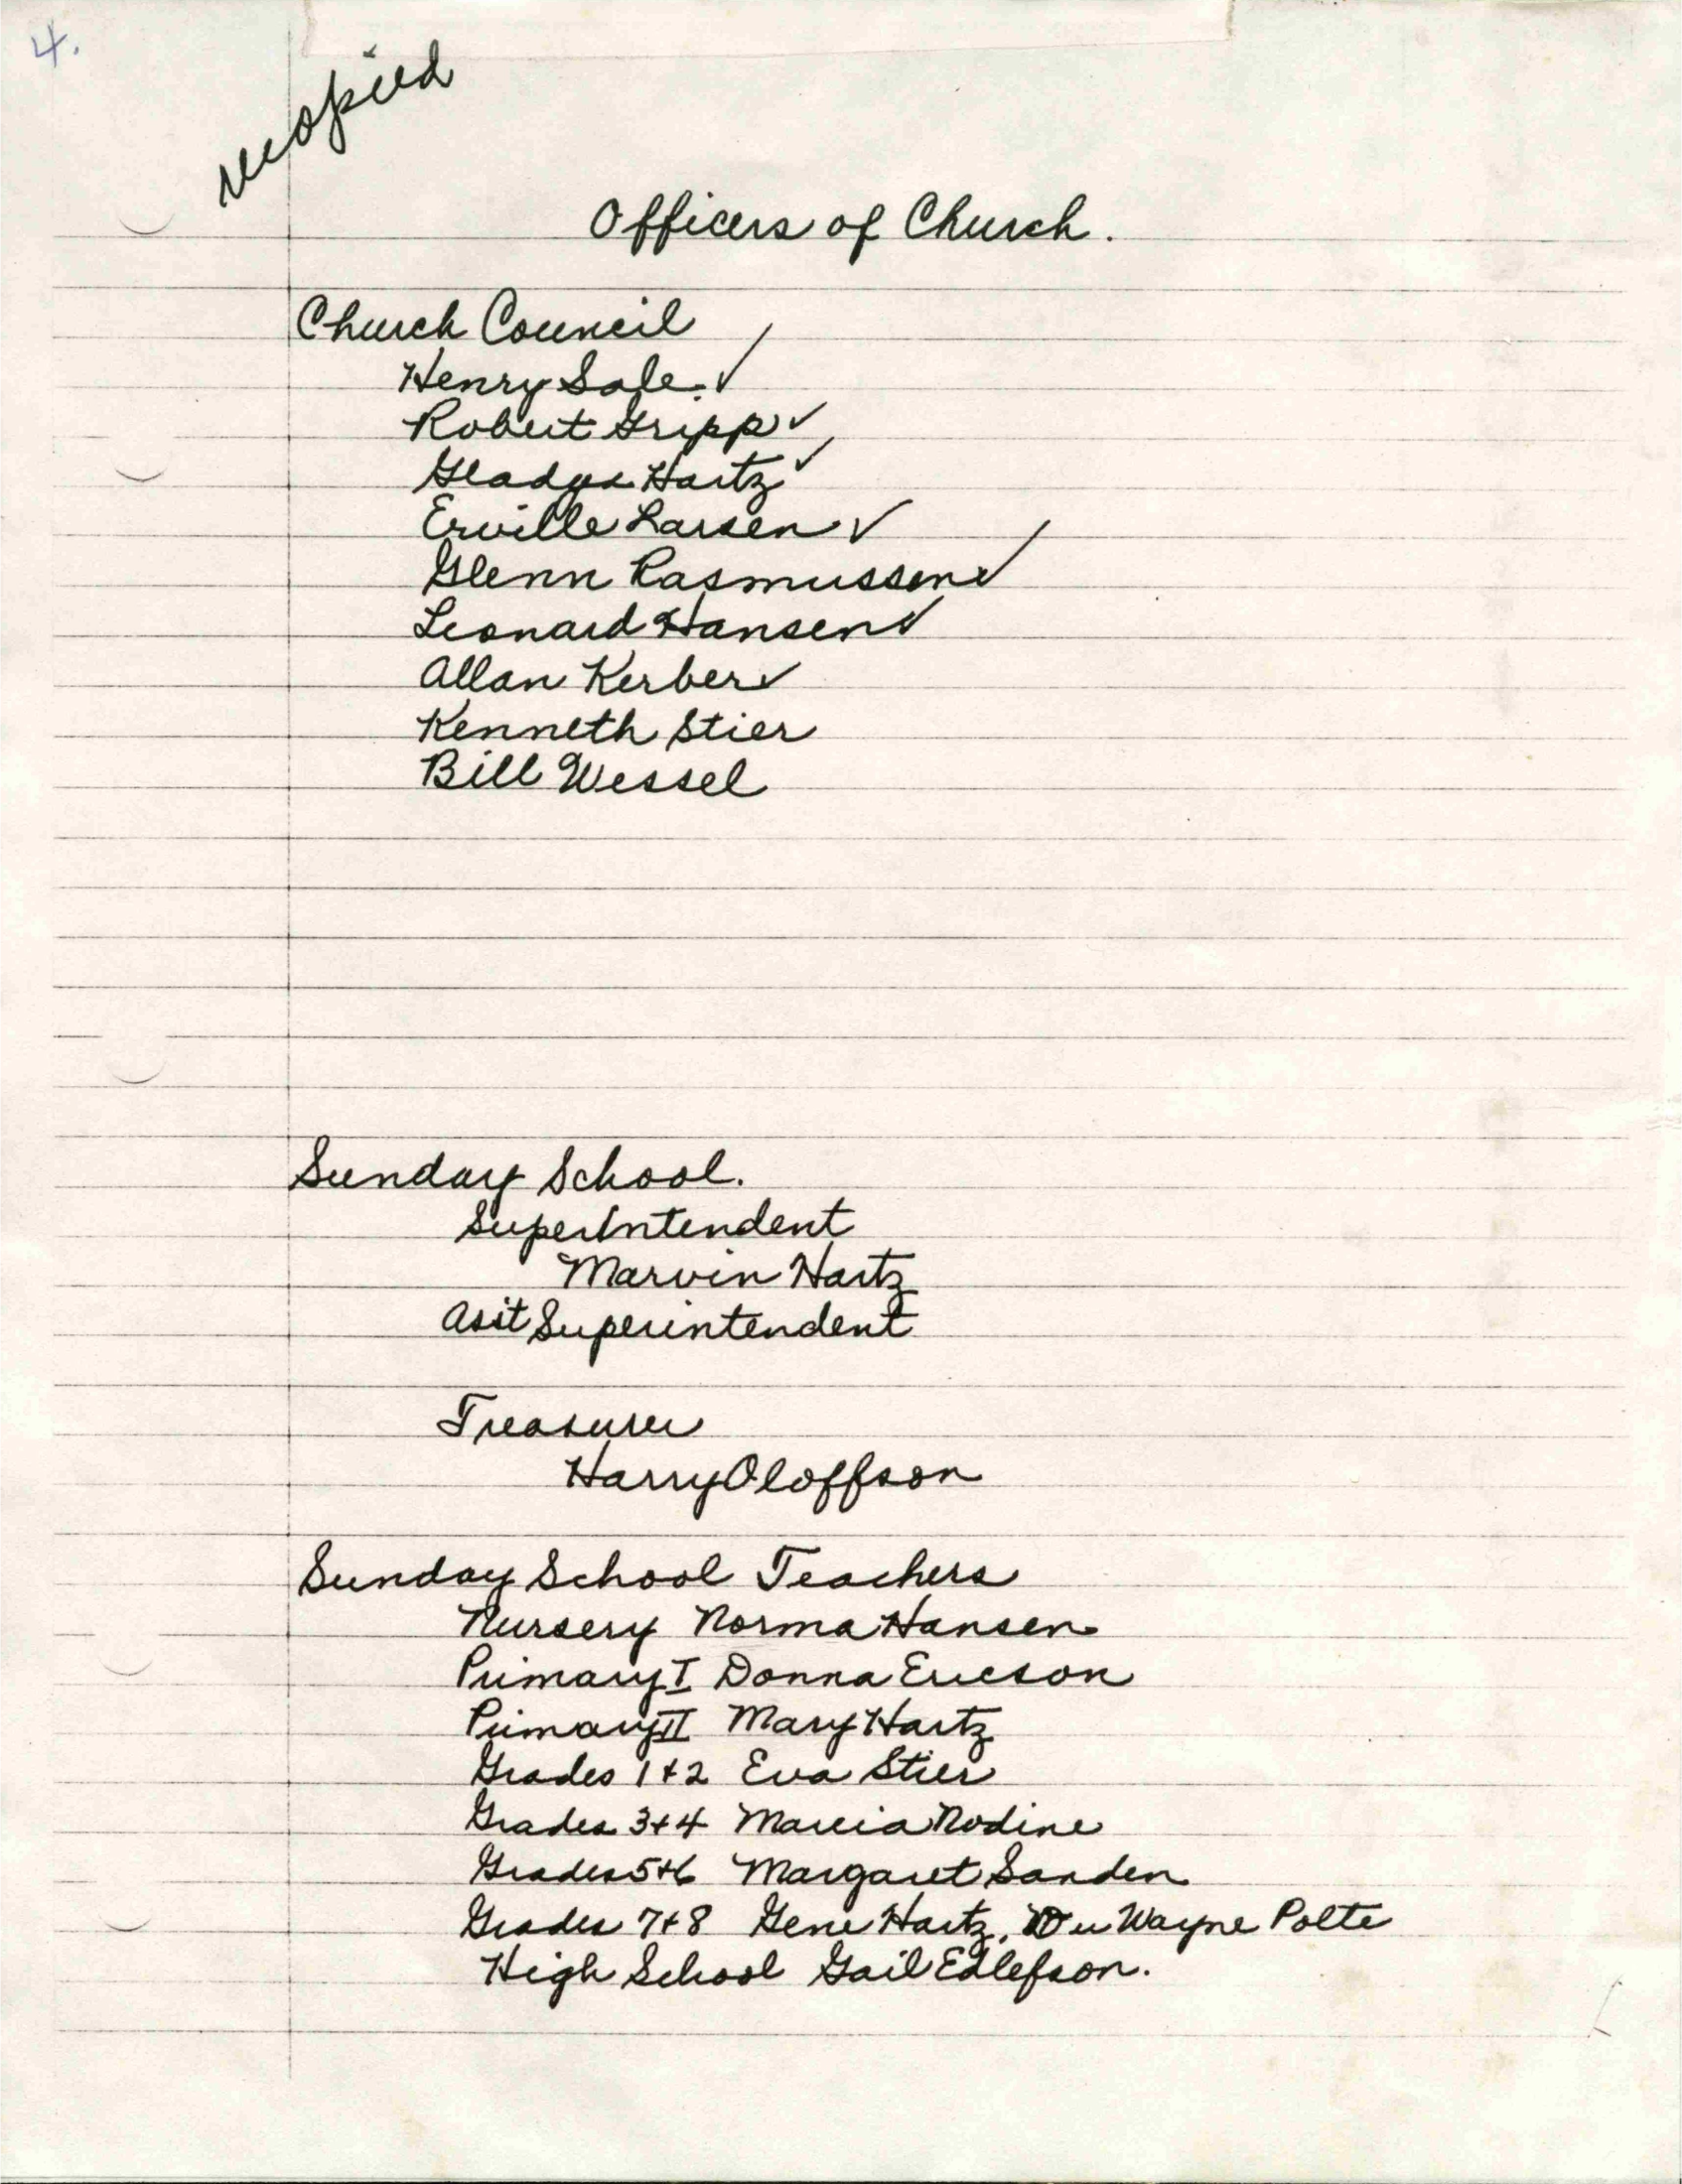 4.
recopied
Officers of Church.
Church Council
Henry Sale. ✓
Robert Gripp ✓
Gladys Hartz ✓
Erville Larsen ✓
Glenn Rasmussen ✓
Leonard Hansen ✓
Allan Kerber ✓
Kenneth Stier
Bill Wessel
Sunday School.
SuperIntendent
Marvin Hartz
Asit Superintendent
Treasurer
Harry Oloffson
Sunday School Teachers
Nursery Norma Hansen
Primary I Donna Ericson
Primary II Mary Hartz
Grades 1+2 Eva Stier
Grades 3+4 Marcia Nodine
Grades 5+6 Margaret Sanden
Grades 7+8 Gene Hartz, DuWayne Polte
High School Gail Edlefson.